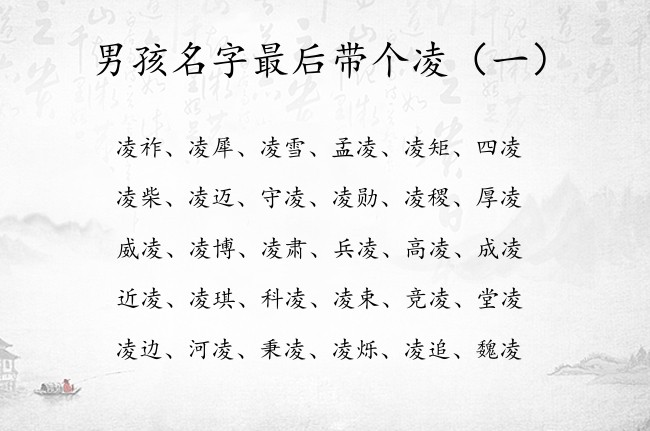 男孩名字最后带个凌（一）
凌祚、凌犀、凌雪、孟凌、凌矩、四凌
凌柴、凌迈、守凌、凌勋、凌稷、厚凌
威凌、凌博、凌肃、兵凌、高凌、成凌
近凌、凌琪、科凌、凌束、竞凌、堂凌
凌边、河凌、秉凌、凌烁、凌追、魏凌